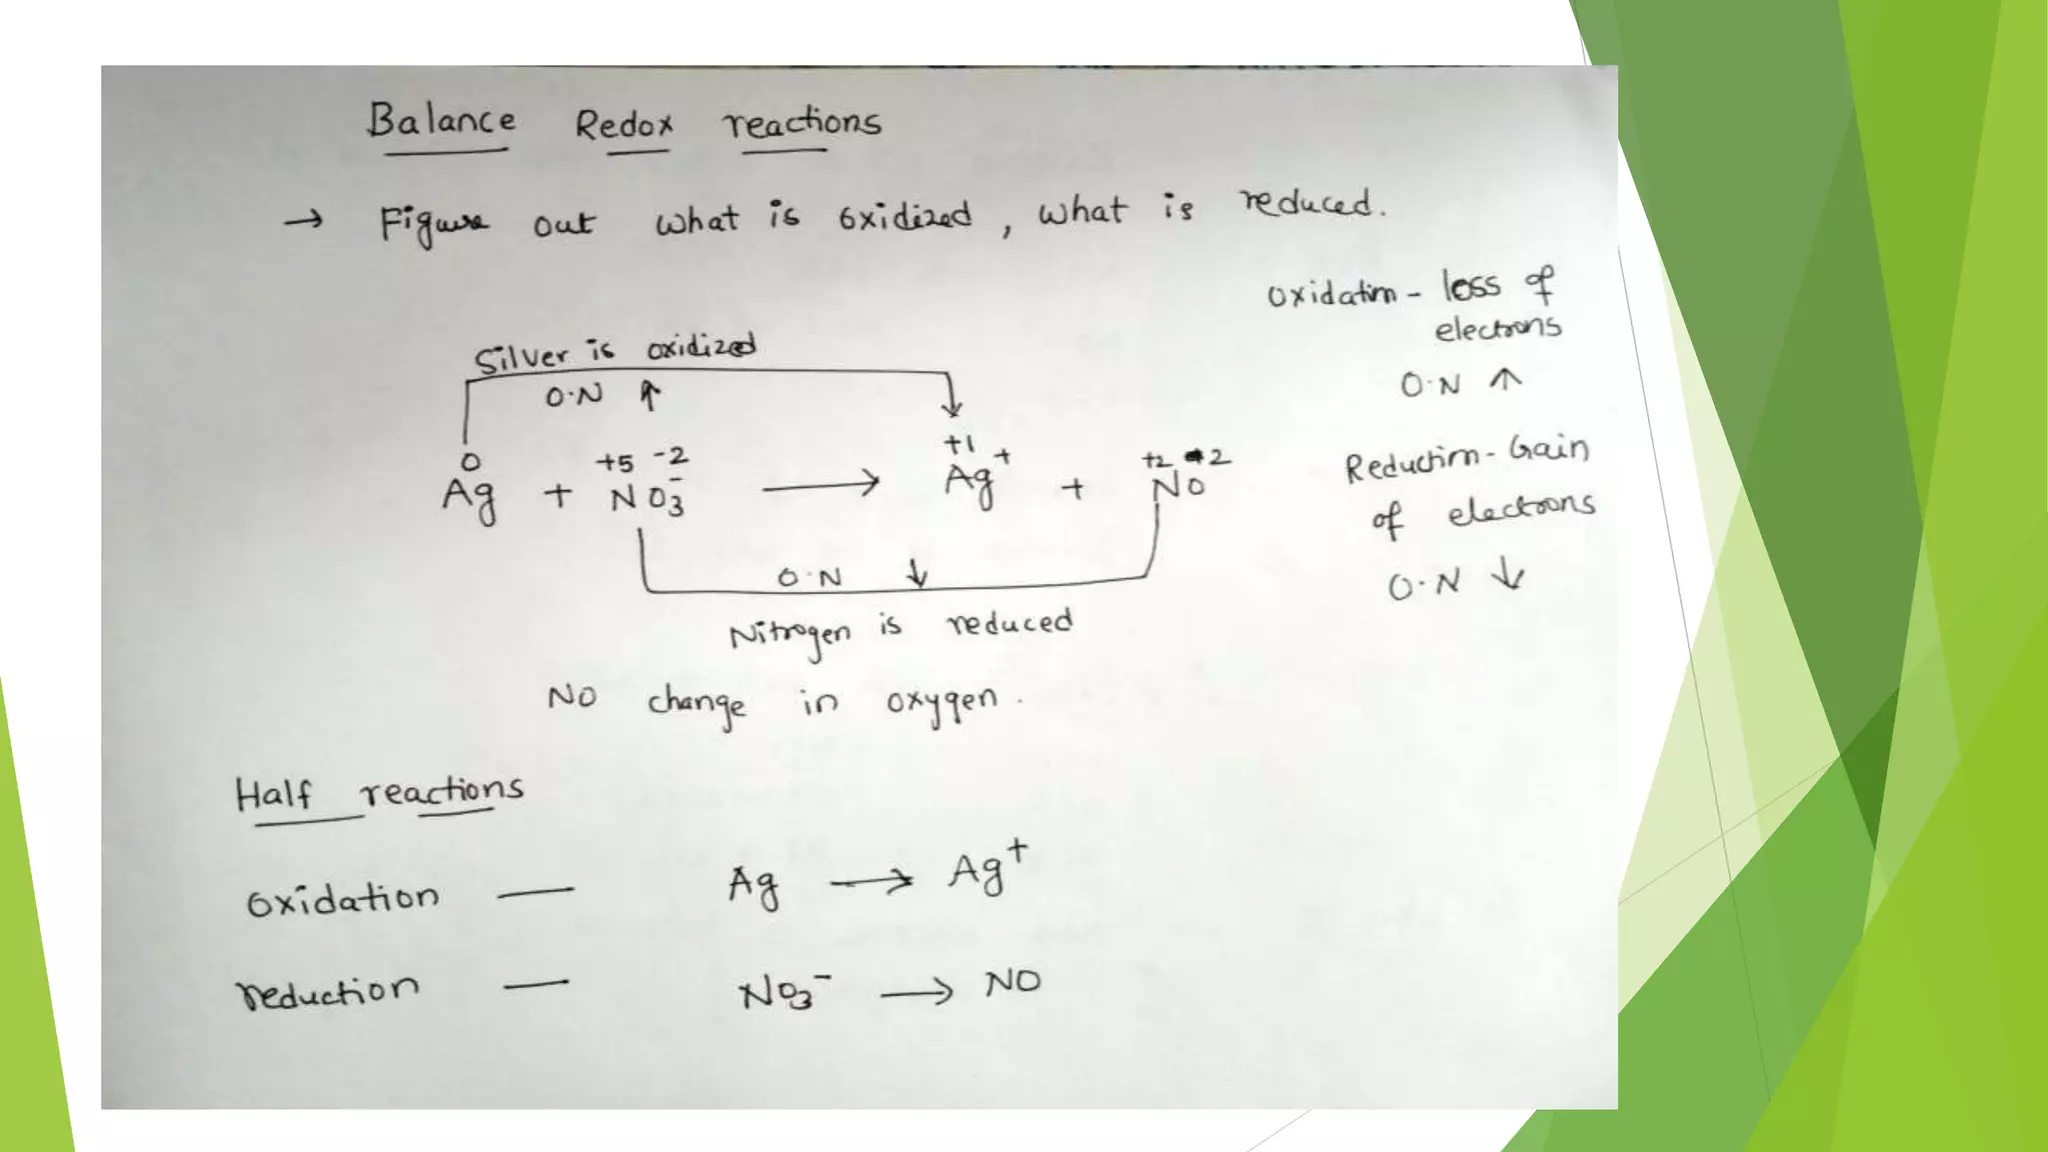 Balance Redox reactions
→ Figure out what is oxidized, what is reduced.
Oxidation - loss of
electrons
O.N ↑
Silver is oxidized
O.N ↑
0 +5 -2 +1 +2 -2
Ag + NO3⁻ → Ag⁺ + NO
Reduction - Gain
of electrons
O.N ↓
O.N ↓
Nitrogen is reduced
No change in oxygen.
Half reactions
Oxidation — Ag → Ag⁺
reduction — NO3⁻ → NO